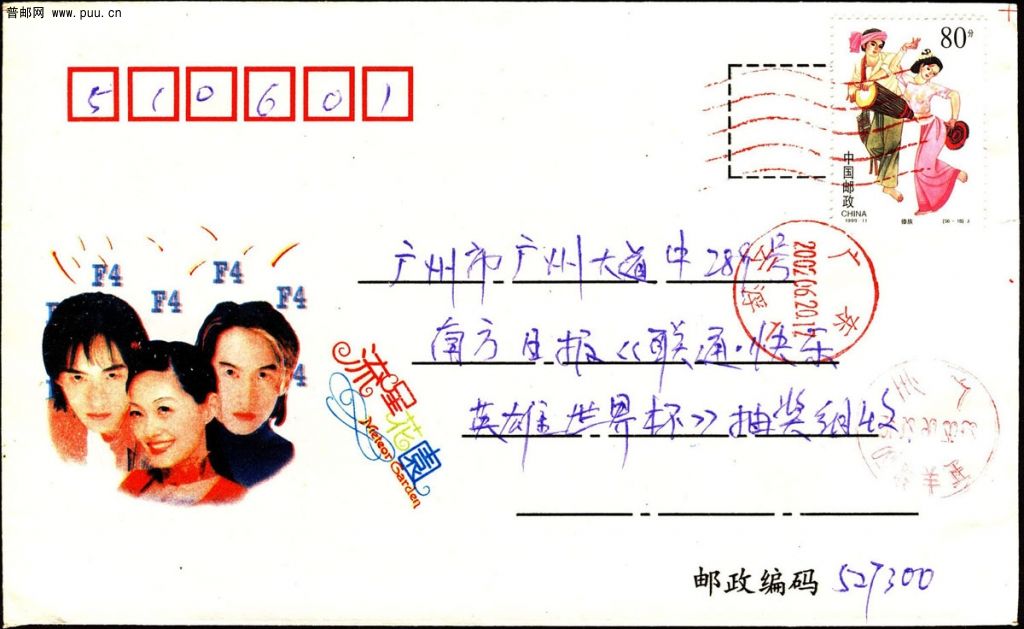 普邮网 www.puu.cn
510601
80分
中国邮政
CHINA
1999.11
傣族
(56-18)J
广州市广州大道中289号
南方日报《联通·快乐
英雄世界杯》抽奖组收
F4
F4
F4
F4
流星花园
Meteor Garden
广东
2002.06.20.12
云浮
广州
邮政编码 527300